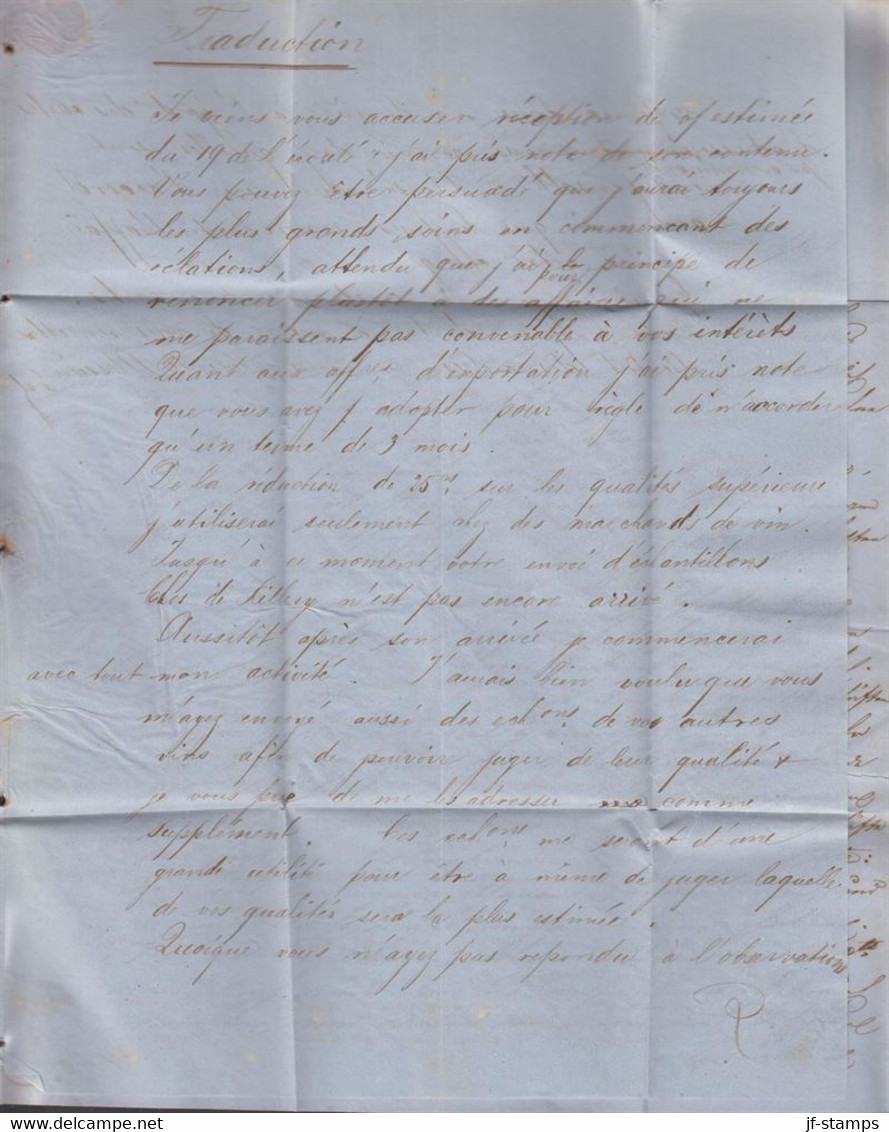 Traduction
Je viens vous accuser réception de v/ estimée
du 19 d. l'écoulé & j'ai pris note de son contenu.
Vous pouvez être persuadé que j'aurai toujours
les plus grands soins en commencant des
rélations, attendu que j'ai pour principe de
renoncer plustôt à des affaires qui ne
me paraissent pas convenable à vos intérèts
Quant aux affres d'exportation j'ai pris note
que vous avez adopter pour règle de n'accorder
qu'un terme de 3 mois.
De la réduction de 25 sur les qualités supérieure
j'utiliserai seulement chez des marchands de vin.
Jusqu'à ce moment votre envoi d'échantillons
n'est pas encore arrivé.
Aussitôt après son arrivée je commencerai
avec tout mon activité. J'aurais bien voulu que vous
m'ayez envoyé aussi des echons. de vos autres
vins afin de pouvoir juger de leur qualité &
je vous prie de me les adresser comme
supplément. Ces echons. me seront d'une
grande utilité pour être à même de juger laquelle
de vos qualités sera la plus estimée.
Quoique vous n'ayez pas repondu à l'observation
jf-stamps